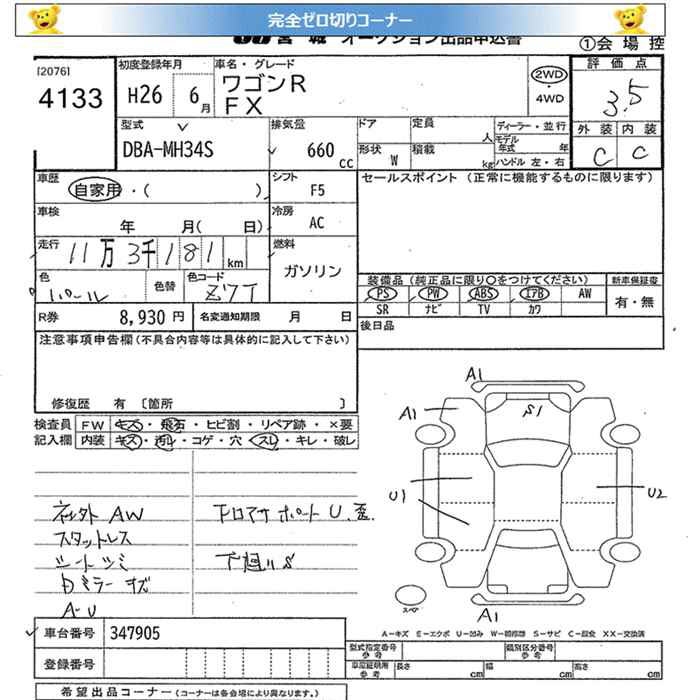 完全ゼロ切りコーナー
宮城 オークション出品申込書
①会場控
[2076]
4133
初度登録年月
H26 6月
車名・グレード
ワゴンR
FX
2WD
・
4WD
評価点
3.5
外装 内装
C C
型式
DBA-MH34S
排気量
660 cc
ドア 定員 人
形状 W 積載 kg
ディーラー・並行
モデル年式 年
ハンドル 左・右
車歴
自家用・( )
シフト
F5
セールスポイント (正常に機能するものに限ります)
車検
年 月( 日)
冷房
AC
走行
11万3千181km
燃料
ガソリン
色
パール
色替
色コード
Z7T
装備品(純正品に限り○をつけてください)
新車保証書
PS PW ABS エアB AW
SR ナビ TV カワ
有・無
R券 8,930円
名変通知期限 月 日
後日品
注意事項申告欄(不具合内容等は具体的に記入して下さい)
修復歴 有 〔箇所 〕
検査員
記入欄
FW キズ・飛石・ヒビ割・リペア跡・×要
内装 キズ・汚レ・コゲ・穴・スレ・キレ・破レ
社外 AW
スタットレス
シートツミ
ミラー キズ
A-U
下ロアサポート U、歪
下廻り S
A1
A1
S1
U1
U2
A1
スペア
A-キズ E-エクボ U-凹み W-補修跡 S-サビ C-腐食 XX-交換済
車台番号 347905
登録番号
型式指定番号
参考
類別区分番号
参考
車庫証明用
参考
長さ cm 幅 cm 高さ cm
希望出品コーナー(コーナーは各会場により異なります。)